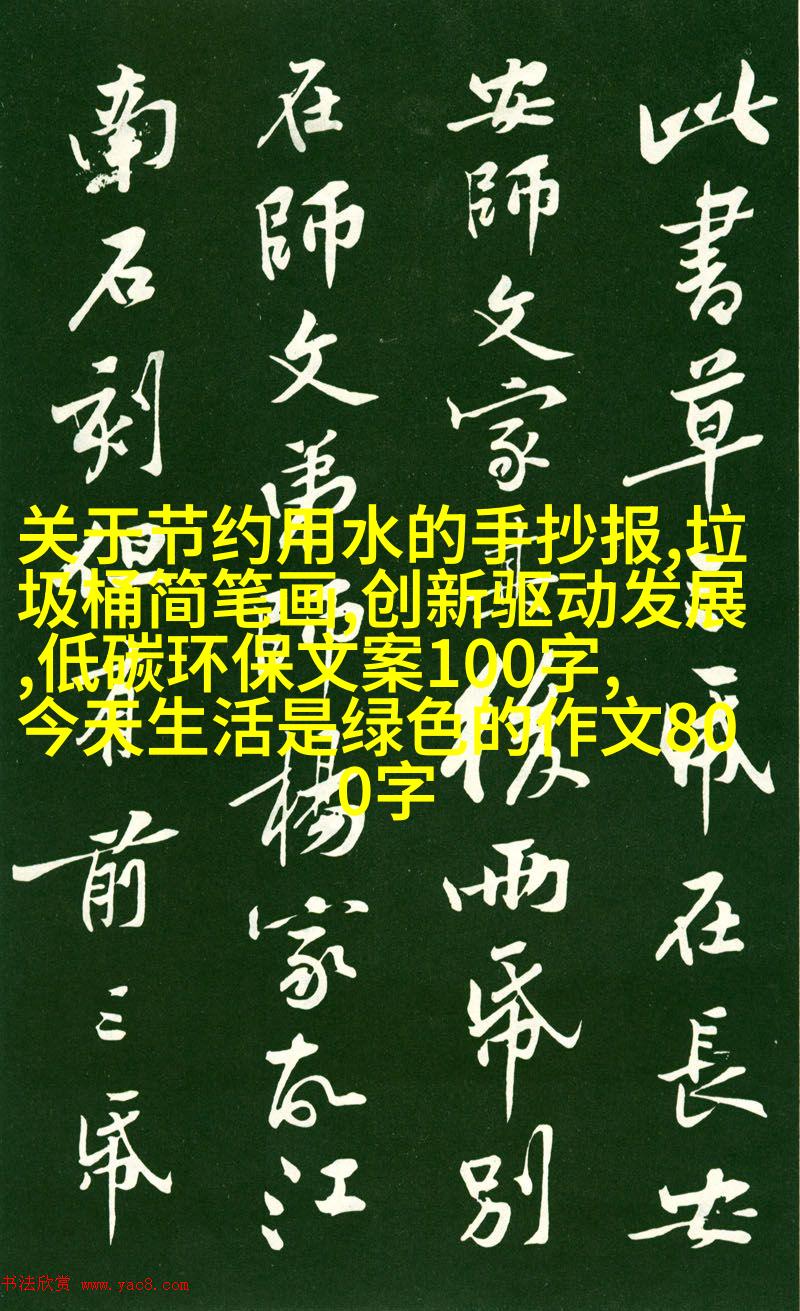 此書草三帋在長安
安師文家其後兩帋別
在師文弟師楊家故江
南石刻但有前三帋
关于节约用水的手抄报,垃
圾桶简笔画,创新驱动发展
,低碳环保文案100字,
今天生活是绿色的作文80
0字
书法欣赏 www.yac8.com